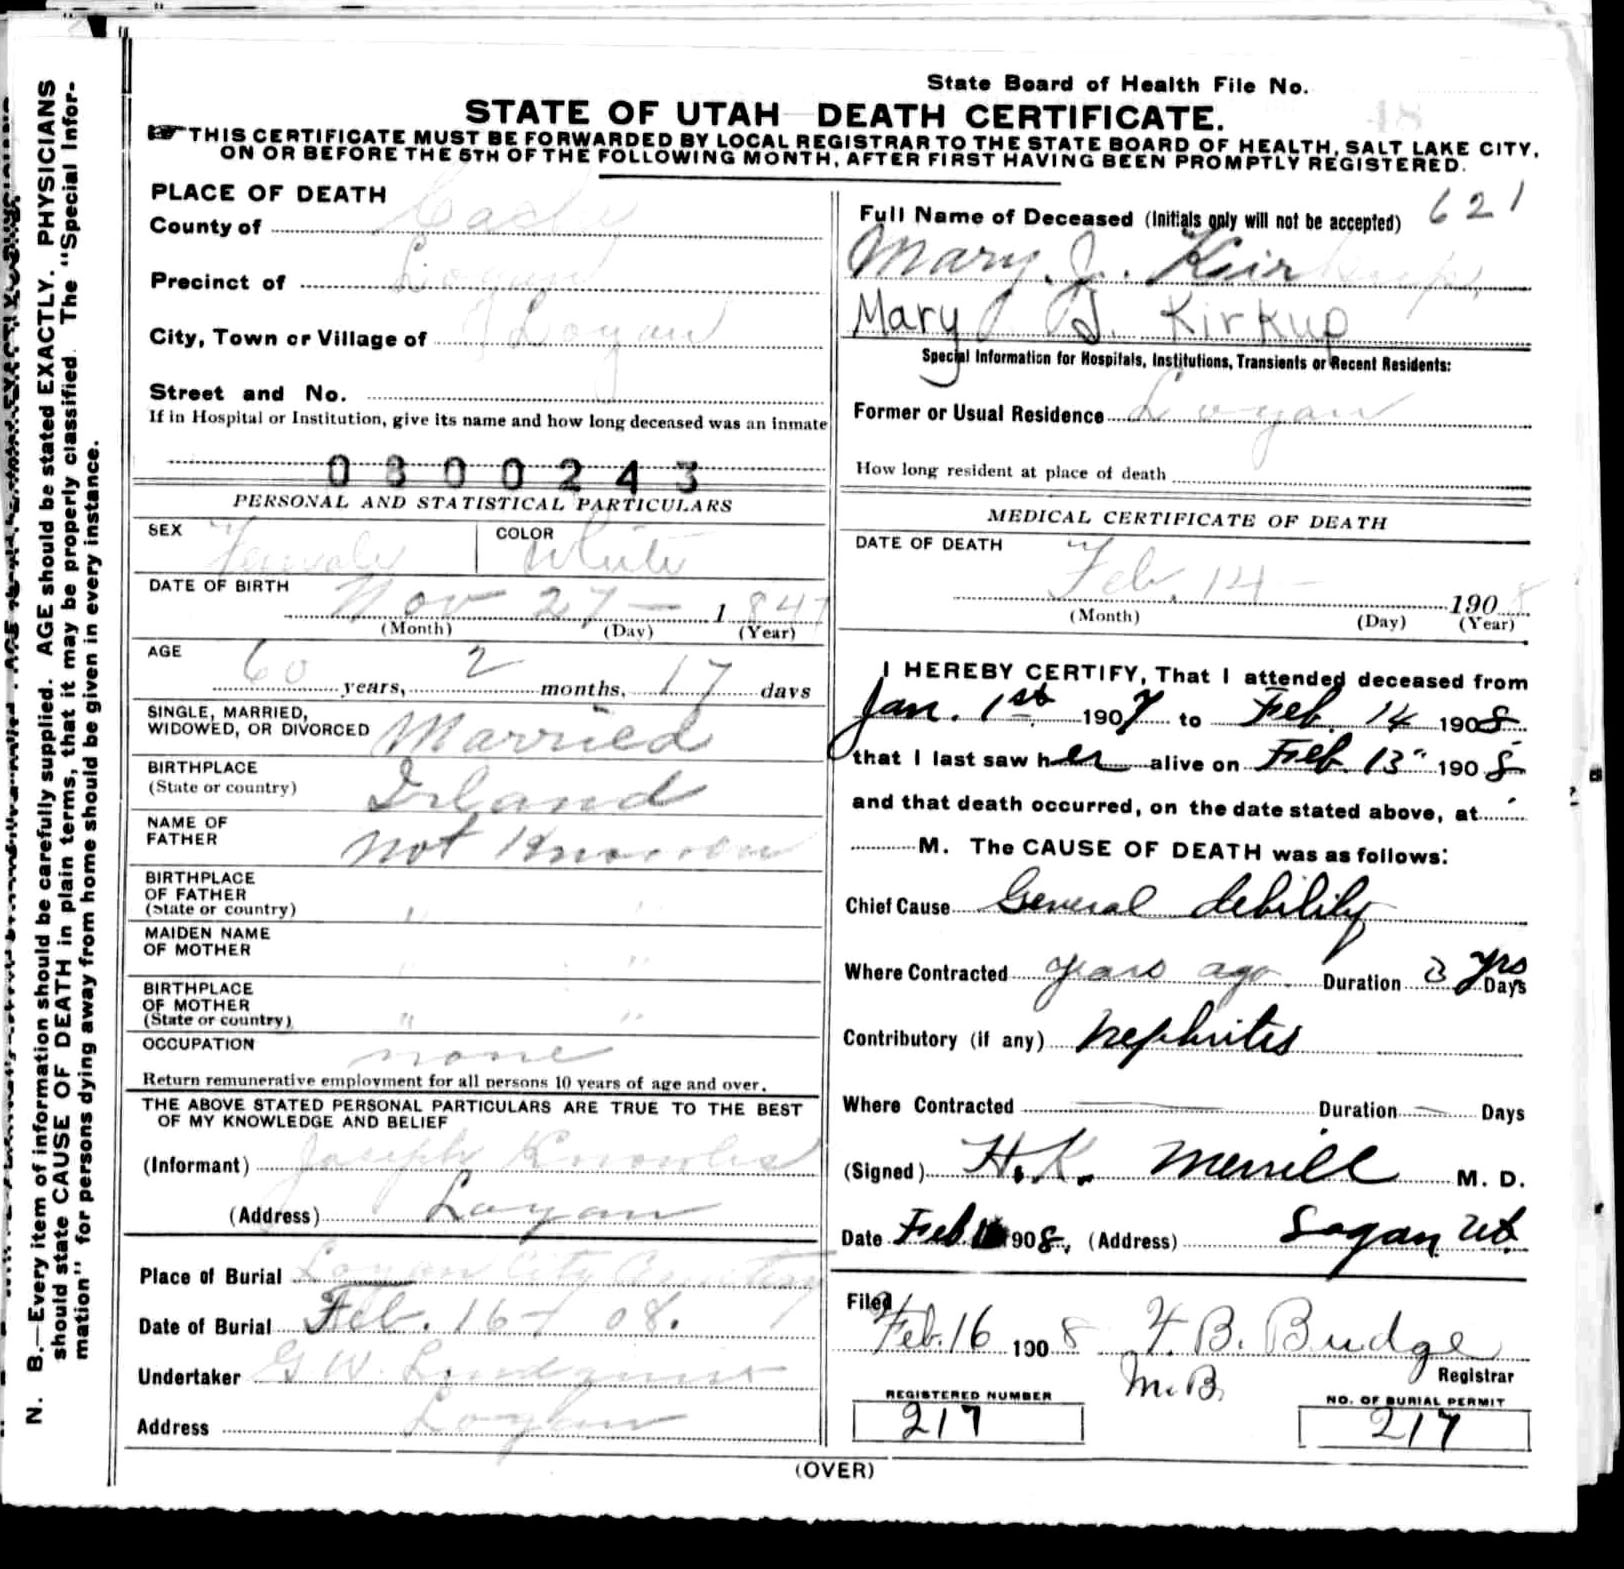 State Board of Health File No.
48
STATE OF UTAH DEATH CERTIFICATE.
THIS CERTIFICATE MUST BE FORWARDED BY LOCAL REGISTRAR TO THE STATE BOARD OF HEALTH, SALT LAKE CITY,
ON OR BEFORE THE 5TH OF THE FOLLOWING MONTH, AFTER FIRST HAVING BEEN PROMPTLY REGISTERED.
N. B.—Every item of information should be carefully supplied. AGE should be stated EXACTLY. PHYSICIANS
should state CAUSE OF DEATH in plain terms, that it may be properly classified. The "Special Infor-
mation" for persons dying away from home should be given in every instance.
PLACE OF DEATH
County of Cache
Precinct of Logan
City, Town or Village of Logan
Street and No.
If in Hospital or Institution, give its name and how long deceased was an inmate
0300243
PERSONAL AND STATISTICAL PARTICULARS
SEX Female COLOR White
DATE OF BIRTH Nov 27 — 1847
(Month) (Day) (Year)
AGE 60 years, 2 months, 17 days
SINGLE, MARRIED,
WIDOWED, OR DIVORCED Married
BIRTHPLACE
(State or country) Irland
NAME OF
FATHER Not Known
BIRTHPLACE
OF FATHER
(State or country) " "
MAIDEN NAME
OF MOTHER " "
BIRTHPLACE
OF MOTHER
(State or country) " "
OCCUPATION none
Return remunerative employment for all persons 10 years of age and over.
THE ABOVE STATED PERSONAL PARTICULARS ARE TRUE TO THE BEST
OF MY KNOWLEDGE AND BELIEF
(Informant) Joseph Knowles
(Address) Logan
Place of Burial Logan City Cemetery
Date of Burial Feb. 16 - 08.
Undertaker G W. Lindquist
Address Logan
Full Name of Deceased (Initials only will not be accepted) 621
Mary. J. Kirkup.
Mary J. Kirkup
Special Information for Hospitals, Institutions, Transients or Recent Residents:
Former or Usual Residence Logan
How long resident at place of death
MEDICAL CERTIFICATE OF DEATH
DATE OF DEATH
Feb. 14 — 1908
(Month) (Day) (Year)
I HEREBY CERTIFY, That I attended deceased from
Jan. 1st 1907 to Feb. 14 1908
that I last saw her alive on Feb. 13" 1908
and that death occurred, on the date stated above, at
M. The CAUSE OF DEATH was as follows:
Chief Cause General debility
Where Contracted years ago. Duration 3 yrs Days
Contributory (if any) Nephritis
Where Contracted — Duration — Days
(Signed) H. K. Merrill M. D.
Date Feb 1908, (Address) Logan Ut.
Filed
Feb. 16 1908 F. B. Budge
Registrar
M. B.
REGISTERED NUMBER
217
NO. OF BURIAL PERMIT
217
(OVER)